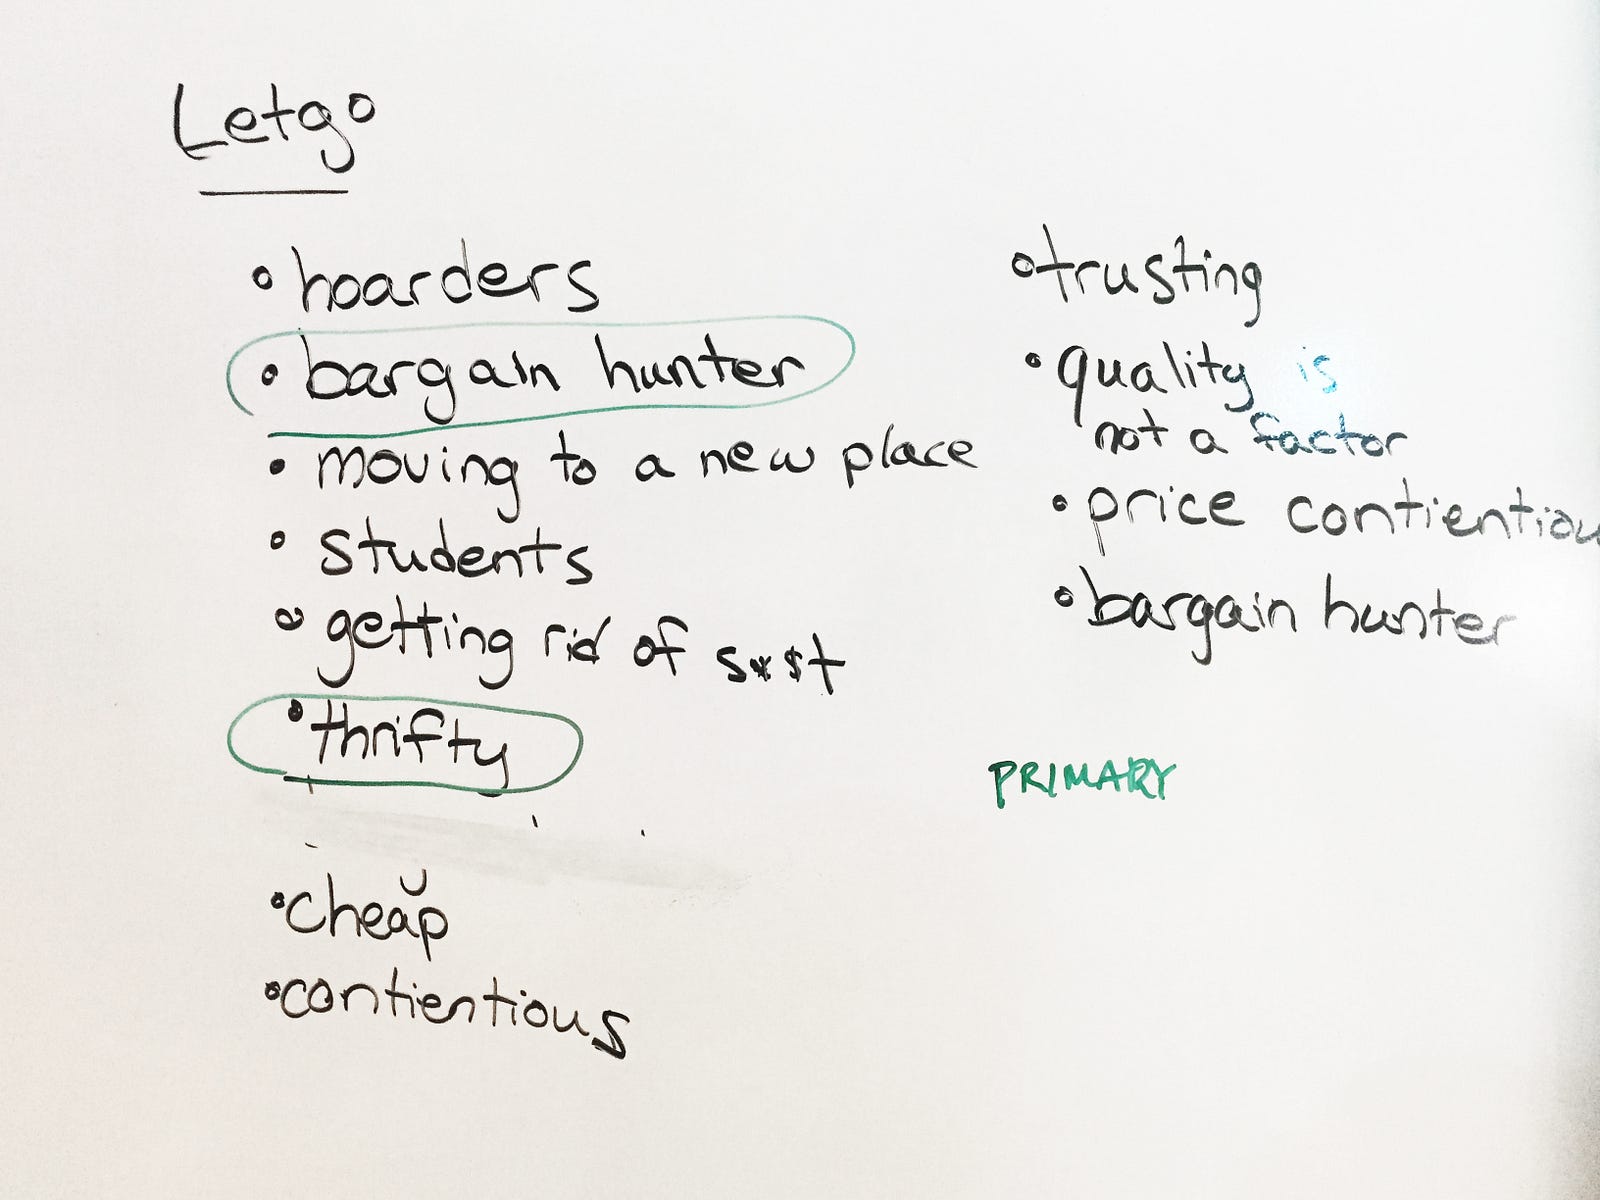 Letgo
• hoarders
• bargain hunter
• moving to a new place
• students
• getting rid of s**$t
• thrifty
• cheap
• contientious
• trusting
• quality is
not a factor
• price contientiou
• bargain hunter
PRIMARY